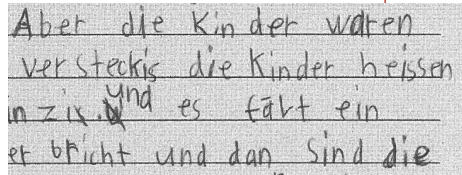 Aber die Kinder waren
versteckis die Kinder heissen
in zis. und es färt ein
er bricht und dan sind die